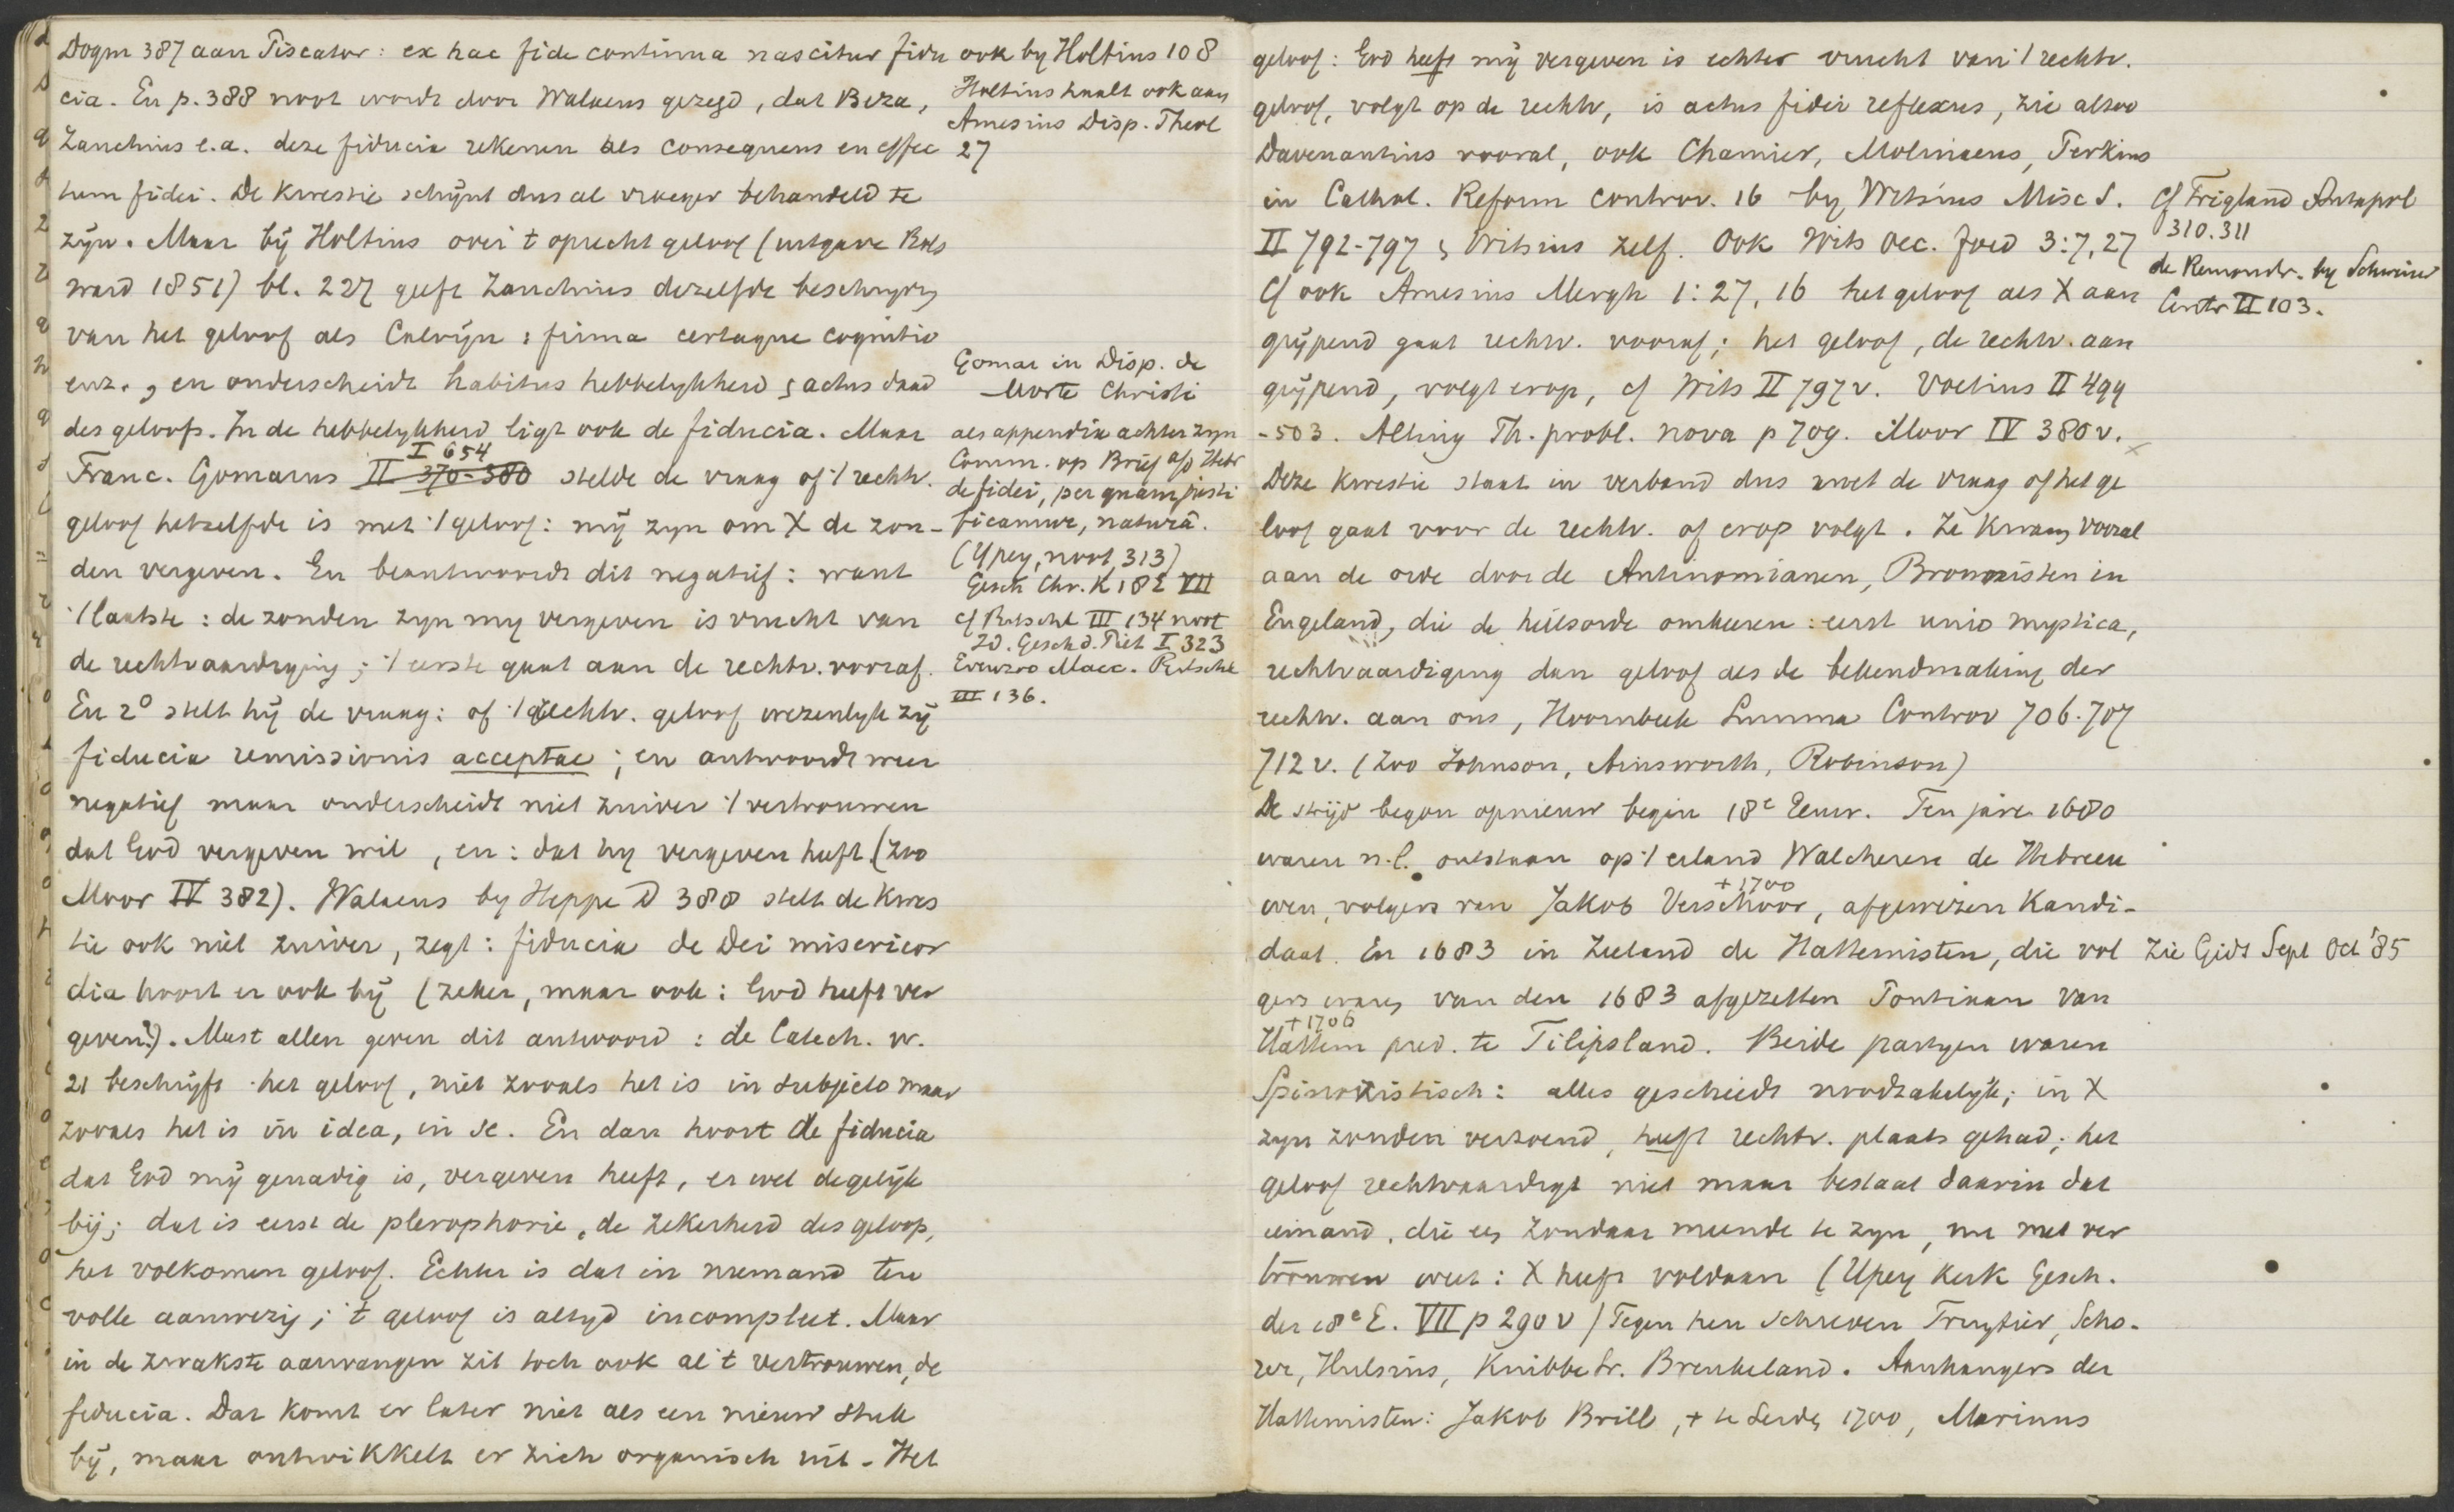 Dogm 387 aan Piscator: ex hac fide continua nascitur fidu
cia. En p. 388 noot wordt door Walaeus gezegd, dat Beza,
Zanchius e.a. deze fiducia rekenen als consequens en effec
tum fidei. De kwestie schijnt dus al vroeger behandeld te
zijn. Maar bij Holtius over 't oprecht geloof (uitgave Bols
ward 1851) bl. 227 geeft Zanchius dezelfde beschryvg
van het geloof als Calvijn: firma certaque cognitio
enz., en onderscheidt habitus hebbelykheid & actus daad
des geloofs. In de hebbelykheid ligt ook de fiducia. Maar
I 654
Franc. Gomarus II 370-380 stelde de vraag of 't rechtv.
geloof hetzelfde is met 't geloof: mij zyn om X de zon-
den vergeven. En beantwoordt dit negatief: want
't laatste: de zonden zyn my vergeven is vrucht van
de rechtvaardiging; 't eerste gaat aan de rechtv. vooraf.
En 2o stelt hij de vraag: of 't rechtv. geloof wezenlyk zij
fiducia remissionis acceptae; en antwoordt weer
negatief maar onderscheidt niet zuiver 't vertrouwen
dat God vergeven wil, en: dat hy vergeven heeft. (Zoo
Moor IV 382). Walaeus by Heppe D 388 stelt de kwes
tie ook niet zuiver, zegt: fiducia de Dei misericor
dia hoort er ook bij (zeker, maar ook: God heeft ver
geven?). Mast allen geven dit antwoord: de Catech. v.
21 beschrijft het geloof, niet zooals het is in subjecto maar
zooals het is in idea, in se. En dan hoort de fiducia
dat God mij genadig is, vergeven heeft, er wel degelijk
bij; dat is eerst de plerophorie, de zekerheid des geloofs,
het volkomen geloof. Echter is dat in niemand ten
volle aanwezig; 't geloof is altyd incompleet. Maar
in de zwakste aanvangen zit toch ook al 't vertrouwen, de
fiducia. Dat komt er later niet als een nieuw stuk
bij, maar ontwikkelt er zich organisch uit. Het
ook by Holtius 108
Holtius haalt ook aan
Amesius Disp. Theol
27
Gomar in Disp. de
Morte Christi
als appendix achter zyn
Comm. op Brief a/d Hebr
de fidei, per quam justi
ficamur, naturâ.
(Ypey, noot, 313)
Gesch Chr. K 18e VII
cf Ritschl III 134 noot
Id. Gesch d. Piet I 323
Evenzoo Macc. Ritschl
III 136.
geloof: God heeft mij vergeven is echter vrucht van 't rechtv.
geloof, volgt op de rechtv, is actus fidei reflexus, zie aldoo
Davenantius vooral, ook Chamier, Molinaeus, Perkins
in Cathol. Reform controv. 16 by Witsius Misc S.
II 792-797 & Witsius zelf. Ook Wits Oec. foed 3:7,27
Cf ook Amesius Mergh 1:27,16 het geloof als X aan
grijpend gaat rechtv. vooraf; het geloof, de rechtv. aan
grijpend, volgt erop, cf Wits II 797 v. Voetius II 499
-503. Alting Th. probl. nova p 709. Moor IV 380 v.
Deze kwestie staat in verband dus met de vraag of het ge
loof gaat voor de rechtv. of erop volgt. Ze kwam vooral
aan de orde door de Antinomianen, Brownisten in
Engeland, die de heilsorde omkeeren: eerst unio mystica,
rechtvaardiging dan geloof als de bekendmaking der
rechtv. aan ons, Hoornbeek Summa Controv 706.707
712 v. (Zoo Johnson, Ainsworth, Robinson)
De strijd begon opnieuw begin 18e Eeuw. Ten jare 1680
waren n.l. ontstaan op 't eiland Walcheren de Hebreeu
+1700
wen, volgers van Jakob Verschoor, afgewezen kandi-
daat. En 1683 in Zeeland de Hattemisten, die vol
gers waren van den 1683 afgezetten Pontiaan van
+1706
Hattem pred. te Filipsland. Beide partyen waren
Spinozistisch: alles geschiedt noodzakelijk; in X
zyn zonden verzoend, heeft rechtv. plaats gehad; het
geloof rechtvaardigt niet maar bestaat daarin dat
iemand, die een zondaar meende te zyn, nu met ver
trouwen weet: X heeft voldaan (Ypey Kerk Gesch.
der 18e E. VII p 290 v) Tegen hen schreven Fruytier, Scho-
rer, Hulsius, Knibbe, Br. Breukeland. Aanhangers der
Hattemisten: Jakob Brill, + te Leiden 1700, Marinus
Cf Trigland Antapol
310.311
de Remonstr. by Schweizer
Centr II 103.
Zie Gids Sept Oct '85